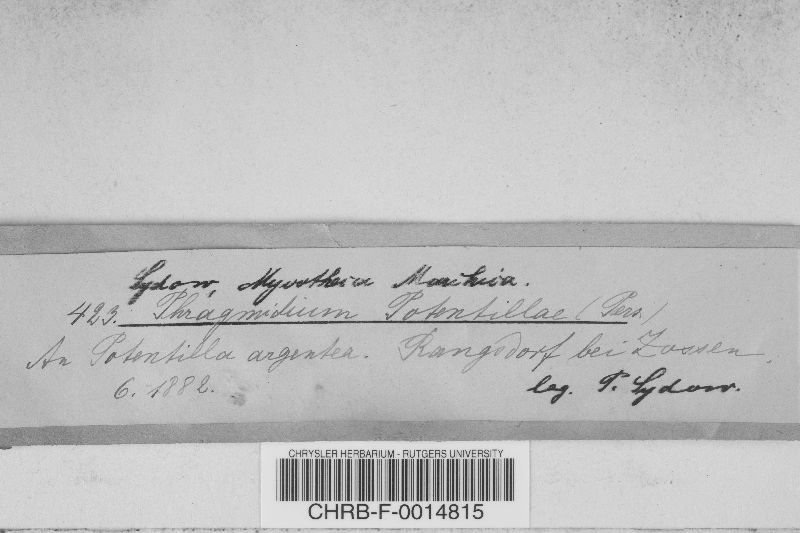 Sydow, Mycotheca Marchica.
423. Phragmidium Potentillae (Pers.)
An Potentilla argentea. Rangsdorf bei Zossen.
6. 1882.
leg. P. Sydow.
CHRYSLER HERBARIUM - RUTGERS UNIVERSITY
CHRB-F-0014815